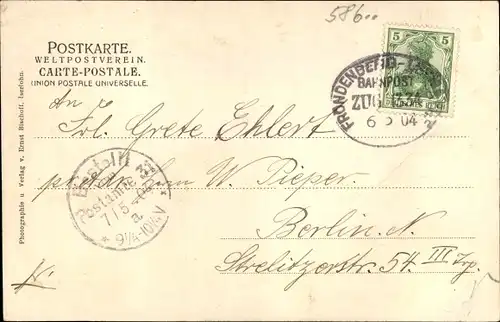 586
POSTKARTE.
WELTPOSTVEREIN.
CARTE-POSTALE.
UNION POSTALE UNIVERSELLE.
5 5
BAHNPOST
ZUG
6 5 04
An
Frl. Grete Ehlert
W. Pieper.
Berlin. N.
Strelitzerstr. 54. III Trp.
Berlin
Postamte
7/5
* 9¼-10½V. *
Photographie u Verlag v. Ernst Bischoff, Iserlohn.